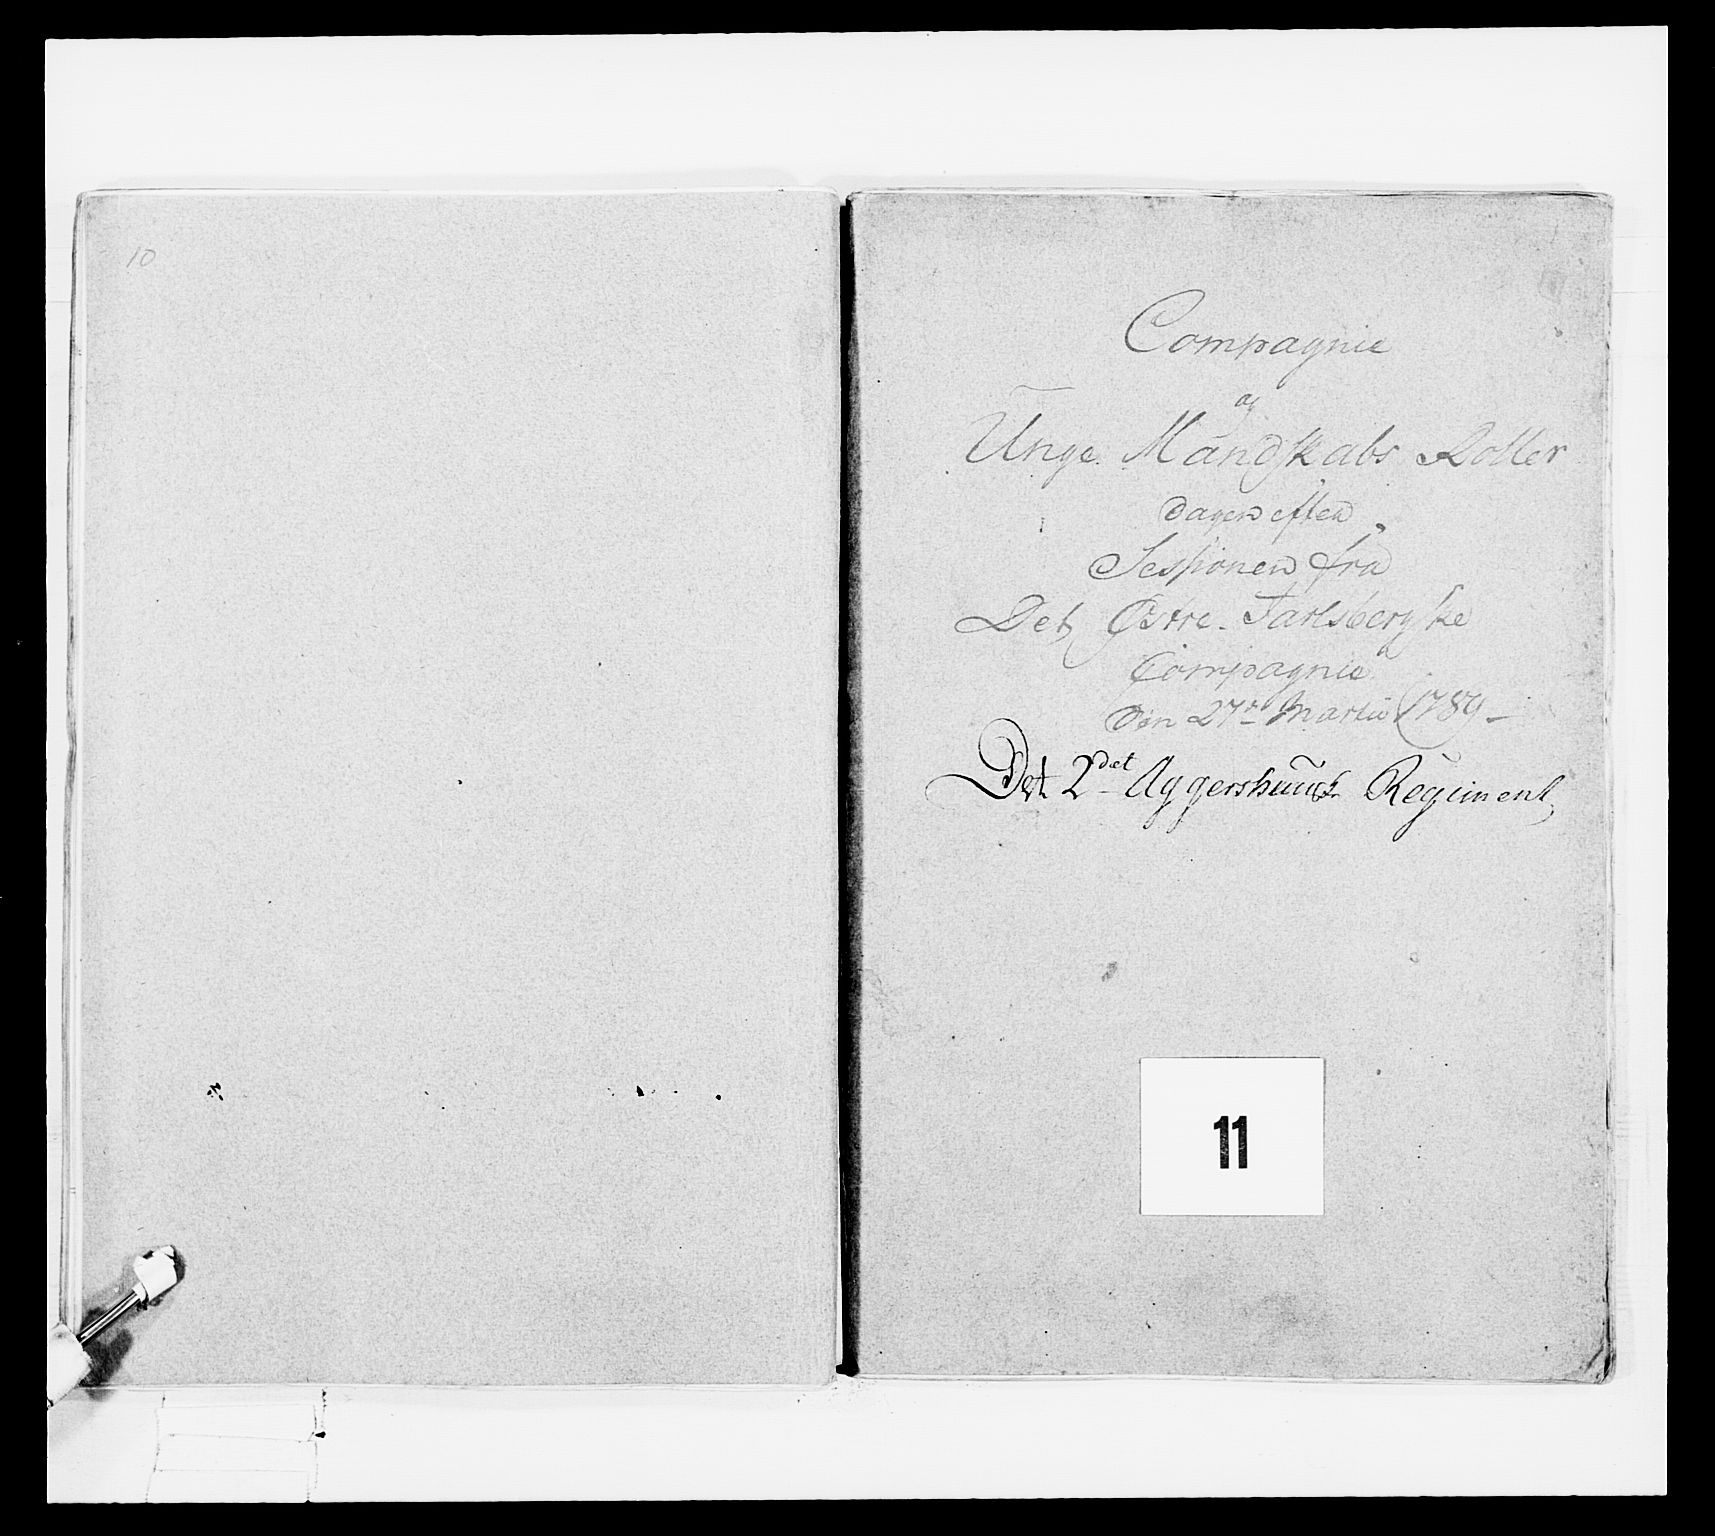 10
Compagnie
og
Unge Mandskabs Roller
dagen efter
Sessionen fra
Det Østre Jarlsbergske
Compagnie
den 27de Martii 1789
Det 2det Aggershuusk Regiment
11